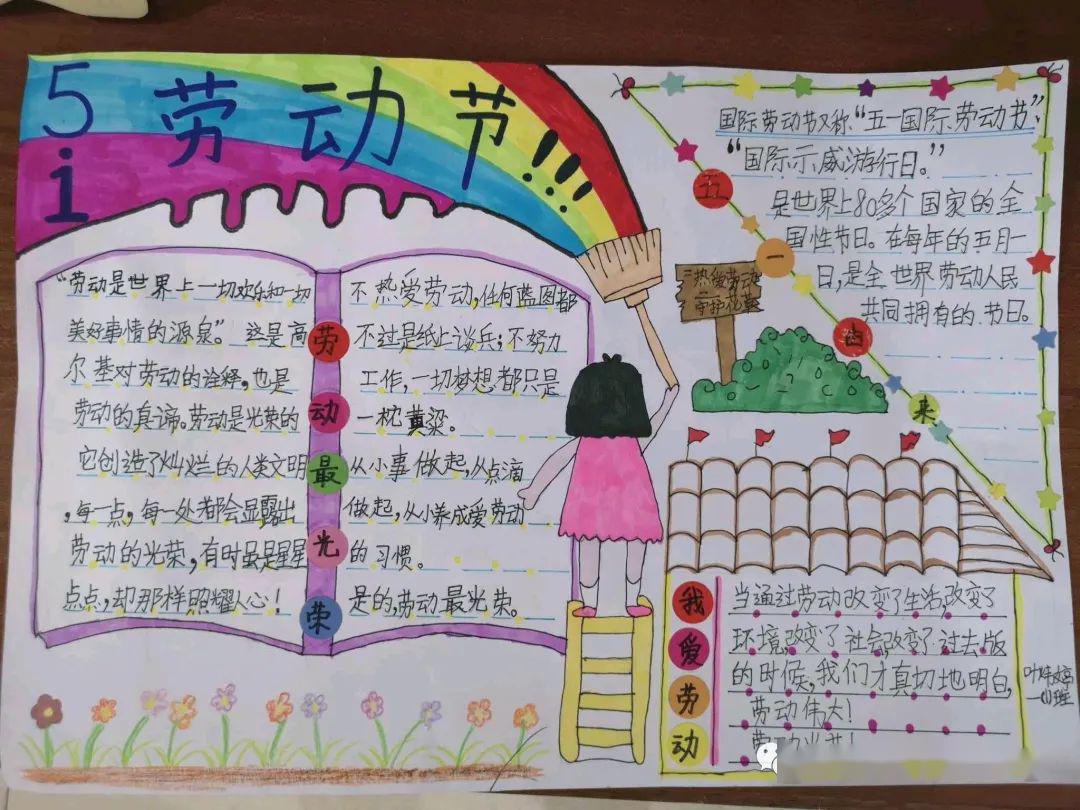 5 劳动节!!!
1
"劳动是世界上一切欢乐和一切
美好事情的源泉"。这是高
尔基对劳动的诠释,也是
劳动的真谛。劳动是光荣的
它创造了灿烂的人类文明
,每一点,每一处都会显露出
劳动的光荣,有时虽是星星
点点,却那样照耀人心!
劳
动
最
光
荣
不热爱劳动,任何蓝图都
不过是纸上谈兵;不努力
工作,一切梦想都只是
一枕黄粱。
从小事做起,从点滴
做起,从小养成爱劳动
的习惯。
是的,劳动最光荣。
热爱劳动
守护花草
五
一
由
来
国际劳动节又称"五一国际劳动节"、
"国际示威游行日。"
是世界上80多个国家的全
国性节日。在每年的五月一
日,是全世界劳动人民
共同拥有的节日。
我
爱
劳
动
当通过劳动改变了生活,改变了
环境,改变了社会,改变了过去版
的时候,我们才真切地明白,
劳动伟大!